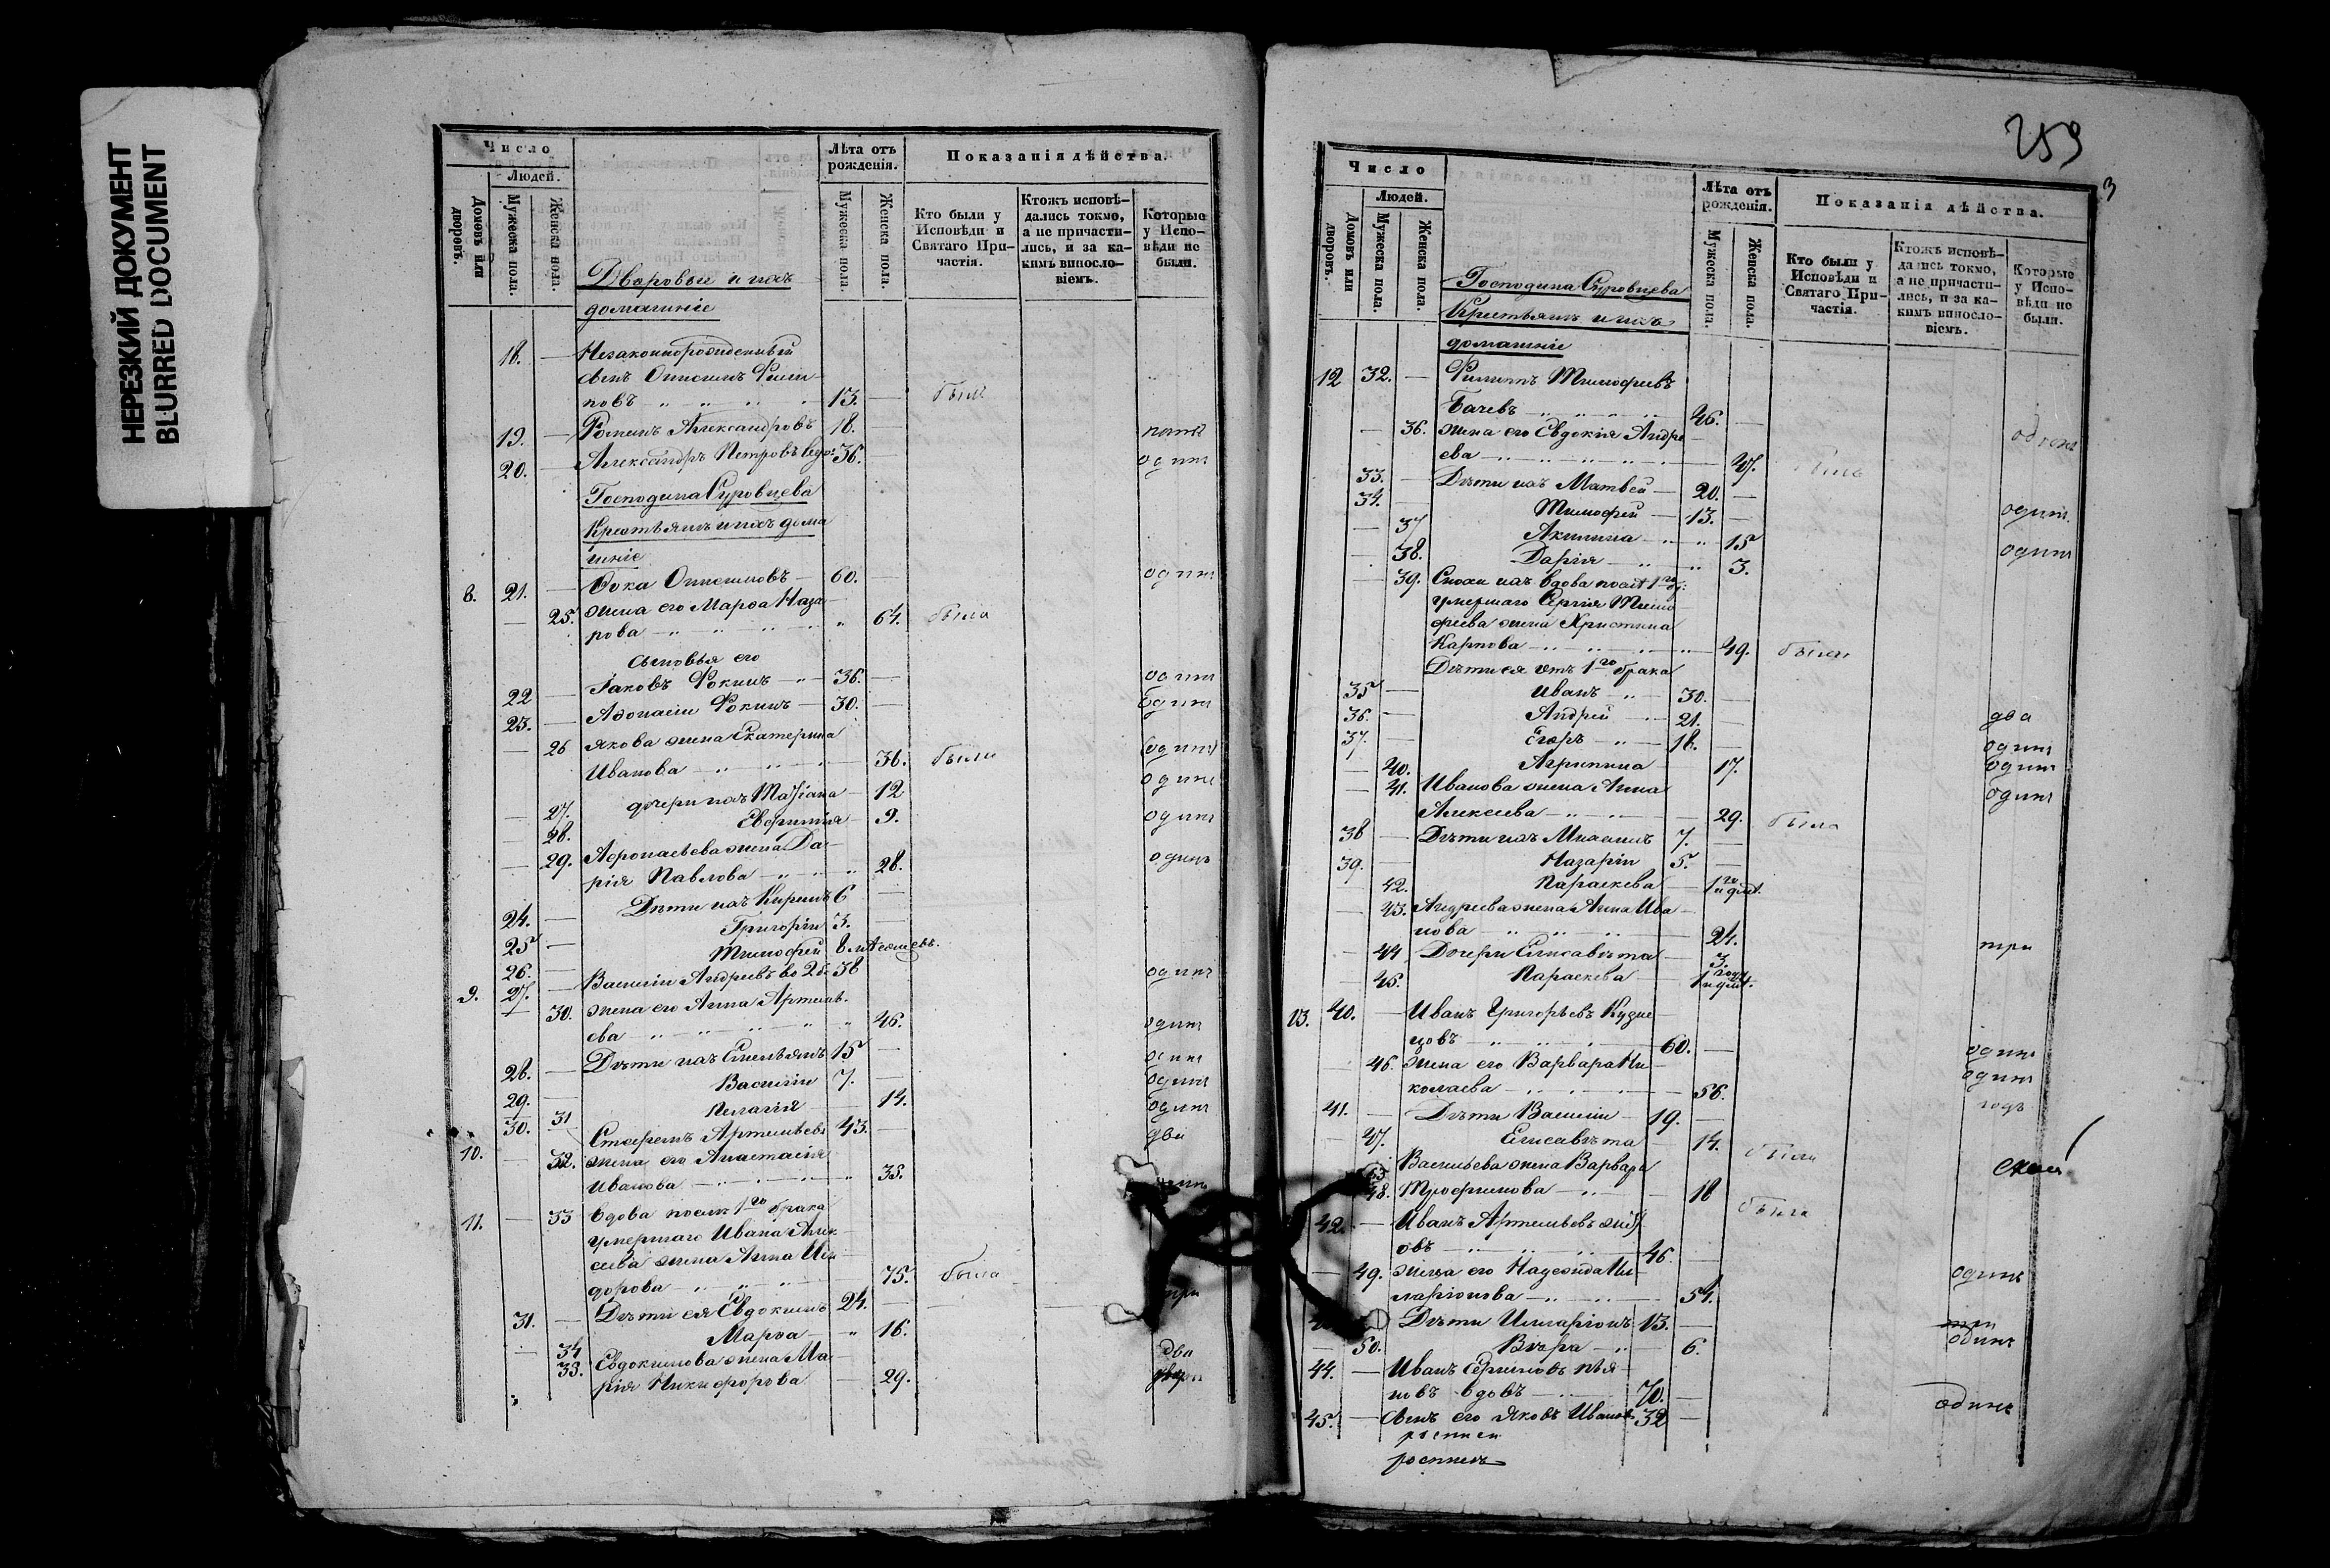 НЕРЕЗКИЙ ДОКУМЕНТ
BLURRED DOCUMENT
Число
Людей.
Домовъ или дворовъ.
Мужеска пола.
Женска пола.
Лѣта отъ рожденія.
Мужеска пола.
Женска пола.
Показанія дѣйства.
Кто были у Исповѣди и Святаго Причастія.
Ктожъ исповѣдались токмо, а не причастились, и за какимъ винословіемъ.
Которые у Исповѣди не были.
Дворовыи и ихъ
домашніе
18. — Незаконнорожденный
сынъ Онисимъ Филип
повъ 13. — былъ
19. — Романъ Александровъ 18.
20. — Александръ Петровъ вдо: 36. — одинъ
Господина Суровцева
Крестьянъ и ихъ дома
шніе
8. 21. — Фока Онисимовъ — 60. одинъ
— 25. жена его Марѳа Наза
рова 64. была
сыновья его
22 — Іаковъ Фокинъ 36. — одинъ
23. — Афонасіи Фокинъ — 30. — одинъ
— 26 Якова жена Екатерина
Иванова 36. были одинъ
— 27. дочери ихъ Татіана — 12 одинъ
— 28. Евфимія — 9. одинъ
— 29. Афонасьева жена Да
рія Павлова 28. одинъ
24. — Дѣти ихъ Кирилъ 6 —
25 — Григоріи 3. —
26. — Тимофей 8 мѣсяцевъ.
9. 27. — Василіи Андреевъ во 2 б. 38 одинъ
— 30. жена его Анна Артемь
ева 46. одинъ
28. — Дѣти ихъ Емельянъ 15 — одинъ
29. — Василіи 7. — одинъ
31 Пелагія 14. одинъ
10. 30. — Артемьевъ 43. — два
— 32. жена его Анастасія
Иванова 35.
11. — 33 Вдова послѣ 1го брака
умершаго Ивана Алек
сѣева жена Анна Иси
дорова 75. была три
31. — Дѣти ея Евдокимъ 24. —
— 34 Марѳа 16. два
33. Евдокимова жена Ма
рія Никифорова — 29.
259
3
Число
Людей.
Домовъ или дворовъ.
Мужеска пола.
Женска пола.
Лѣта отъ рожденія.
Мужеска пола.
Женска пола.
Показанія дѣйства.
Кто были у Исповѣди и Святаго Причастія.
Ктожъ исповѣдались токмо, а не причастились, и за какимъ винословіемъ.
Которые у Исповѣди не были.
Господина Суровцева
Крестьянъ и ихъ
домашніе
12 32. — Филипъ Тимофеевъ
Бачевъ 46. —
— 36. жена его Евдокія Андре
ева 47.
33. — Дѣти ихъ Матвей — 20. —
34. Тимофей — 13. — одинъ.
— 37 Акилина 15 одинъ
— 38. Дарія 3.
— 39. Сноха ихъ вдова послѣ 1го бр:
умершаго Сергія Тимо
феева жена Христина
Карпова 49. была
Дѣти ея отъ 1го брака
35 — Иванъ 30. —
36. — Андрей 21. — два
37. — Егоръ 18. — одинъ
— 40. Агрипина 17. одинъ
— 41. Иванова жена Анна одинъ
Алексеева — 29. была
38 — Дѣти ихъ 7. —
39. — Назаріи 5. —
— 42. Параскева — 1го
— 43. Андреева жена Анна Ива
нова 24.
— 44 Дочери Елисавѣта 3. три
— 45. Параскева — 1 году
13. 40. — Иванъ Григорьевъ Кузне
цовъ 60. — одинъ
— 46. жена его Варвара Ни одинъ
колаева — 56.
41. — Дѣти Василіи — 19. —
— 47. Елисавѣта 14. была
Васильева жена Варвара
48. Трофимова — 18 была
42. — Иванъ Артемьевъ
овъ 46. —
— 49. жена его Надежда Ил одинъ
ларіонова 54.
Дѣти Иларіонъ 13. —
— 50. Вѣра 6. одинъ
44. — Иванъ
новъ вдовъ 70. —
45. — Сынъ его Яковъ Ивановъ 32 — одинъ